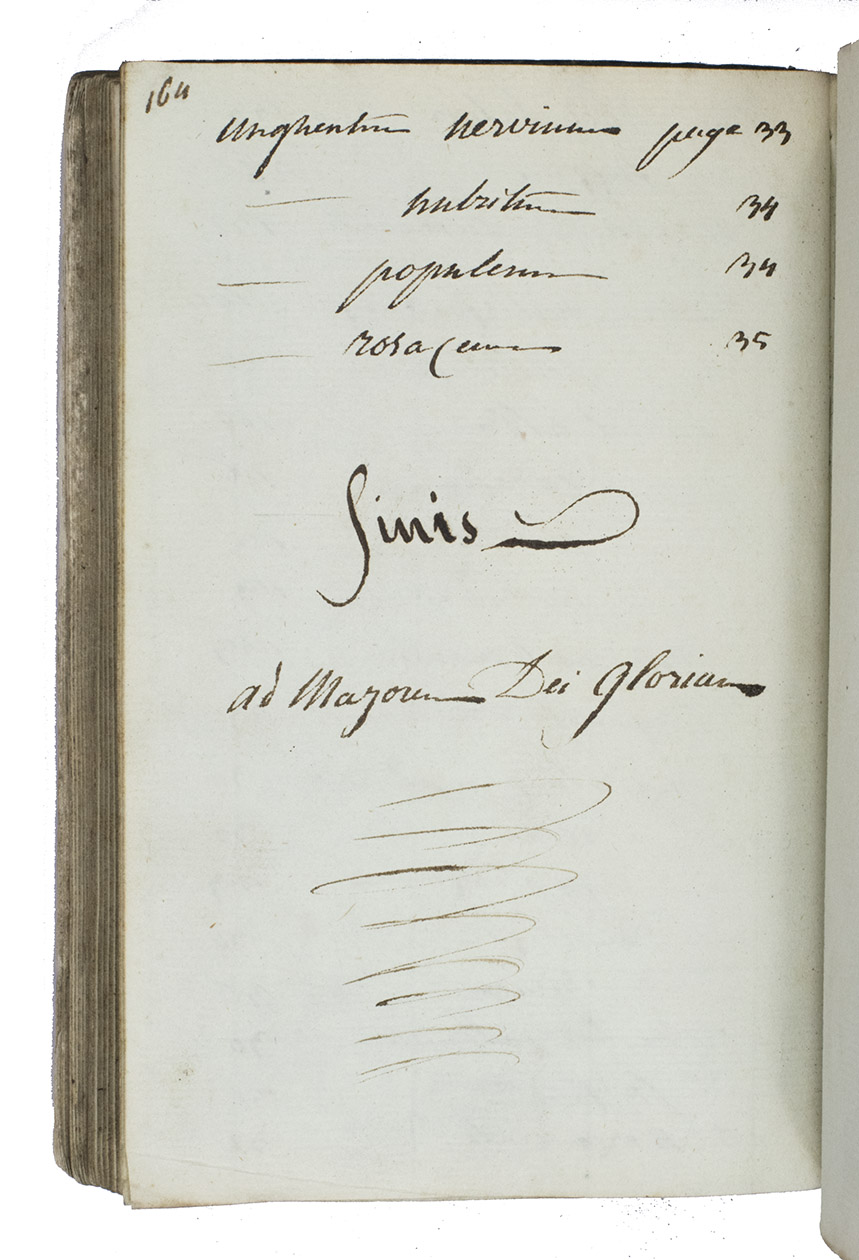 164
Unghentum nervinum page 33
— nutritum 34
— populeum 34
— rosaceum 35
finis
ad Mayorem Dei gloriam